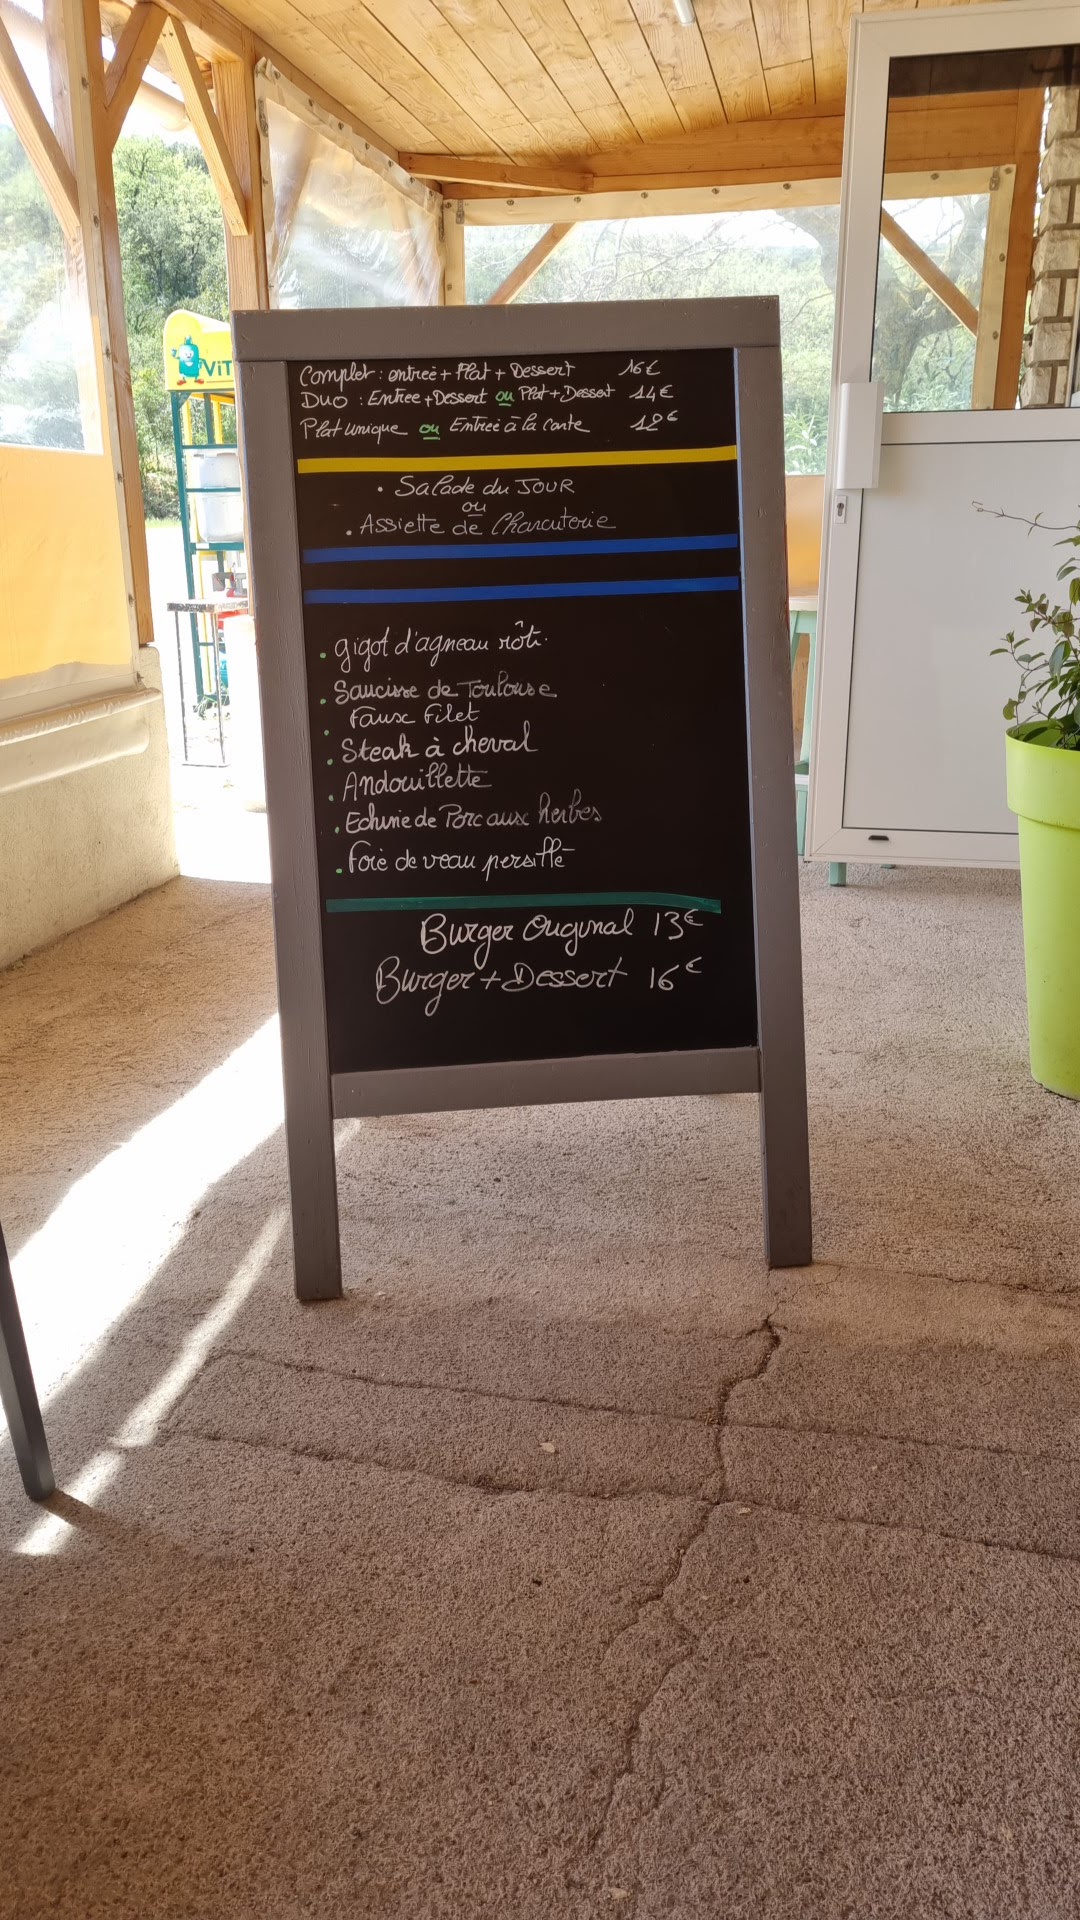 Complet : entreé + Plat + Dessert 16€
DUO : Entree + Dessert ou Plat + Dessert 14€
Plat unique ou Entreé à la carte 12€
• Salade du JOUR
ou
• Assiette de Charcuterie
• gigot d'agneau rôti
• Saucisse de Toulouse
• Faux Filet
• Steak à cheval
• Andouillette
• Echine de Porc aux herbes
• Foie de veau persillé
Burger Original 13€
Burger + Dessert 16€
ViT